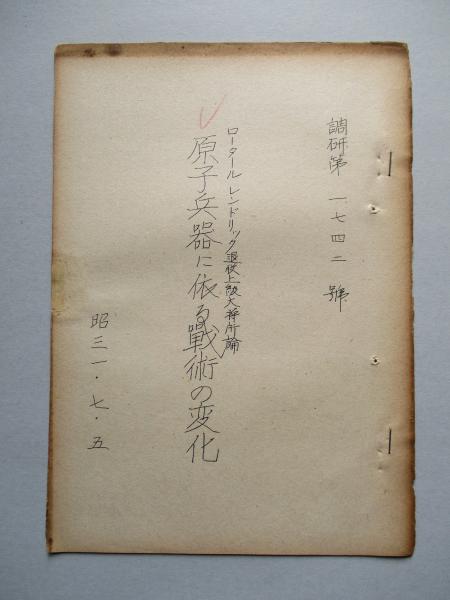 調研第一七四二號
ロータールレンドリック退役上級大将所論
原子兵器に依る戰術の変化
昭三一・七・五